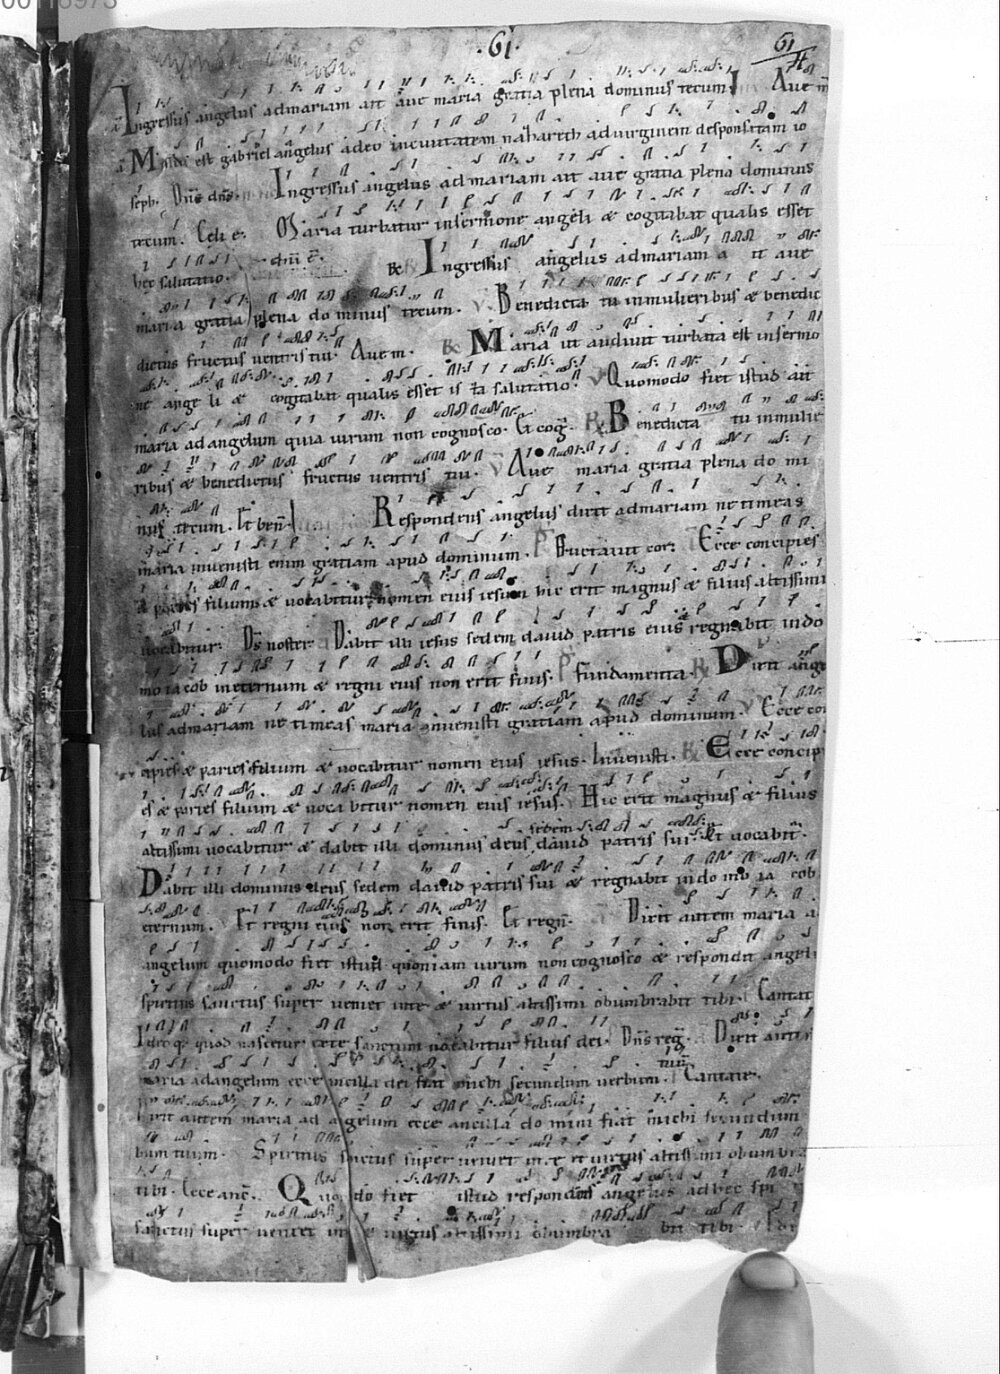 ·61·
61
Ingressus angelus admariam ait aue maria gratia plena dominus tecum Aue m
Missus est gabriel angelus adeo inciuitatem nazareth aduirginem desponsatam io
seph. Dns dns. Ingressus angelus admariam ait aue gratia plena dominus
tecum. Celi e. Maria turbatur insermone angeli & cogitabat qualis esset
hec salutatio. Ingressus angelus admariam a it aue
maria gratia plena dominus tecum. V. Benedicta tu inmulieribus & benedic
dictus fructus uentris tui. Aue m. Maria ut audiuit turbata est insermo
ne ange li & cogitabat qualis esset is ta salutatio. V Quomodo fiet istud ait
maria adangelum quia uirum non cognosco. Et cog. Benedicta tu inmulie
ribus & benedictus fructus uentris tui. V Aue maria gratia plena do mi
nus tecum. Et ben. Respondens angelus dixit admariam ne timeas
maria inuenisti enim gratiam apud dominum. Eructauit cor. Ecce concipies
& paries filium & uocabitur nomen eius iesum hic erit magnus & filius altissimi
uocabitur. Ds noster. Dabit illi iesus sedem dauid patris eius regnabit indo
mo iacob ineternum & regni eius non erit finis. Fundamenta. Dixit ange
lus admariam ne timeas maria inuenisti gratiam apud dominum. V Ecce con
cipies & paries filium & uocabitur nomen eius iesus. Inuenisti. Ecce concip
es & paries filium & uoca bitur nomen eius iesus. Hic erit magnus & filius
altissimi uocabitur & dabit illi dominus deus dauid patris sui. Et uocabit.
sedem
Dabit illi dominus deus sedem dauid patris sui & regnabit indo mo ia cob
eternum. Et regni eius non erit finis. Et regn. Dixit autem maria a
angelum quomodo fiet istud quoniam uirum noncognosco & respondit angelu
spiritus sanctus super ueniet inte & uirtus altissimi obumbrabit tibi. Cantat
Ideo q quod nascetur exte sanctum uocabitur filius dei. Dns reg. Dixit aute
maria adangelum ecce ancilla dei fiat michi secundum uerbum. Cantate.
tuum
Dixit autem maria ad angelum ecce ancilla do mini fiat michi secundum
bum tuum. Spiritus sanctus super ueniet in te et uirtus altissimi obumbra
tibi. Ecce anc. Quo do fiet istud respondens angelus adhec spi
sanctus super ueniet in te & uirtus altissimi obumbra bit tibi.